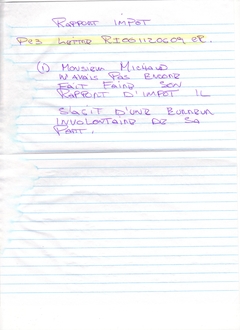 RAPPORT IMPOT
Pez LETTRE RI001120609 ER.
① MONSIEUR MICHAUD
N'AVAIS PAS ENCORE
FAIT FAIRE SON
RAPPORT D'IMPOT IL
S'AGIT D'UNE ERREUR
INVOLONTAIRE DE SA
PART.